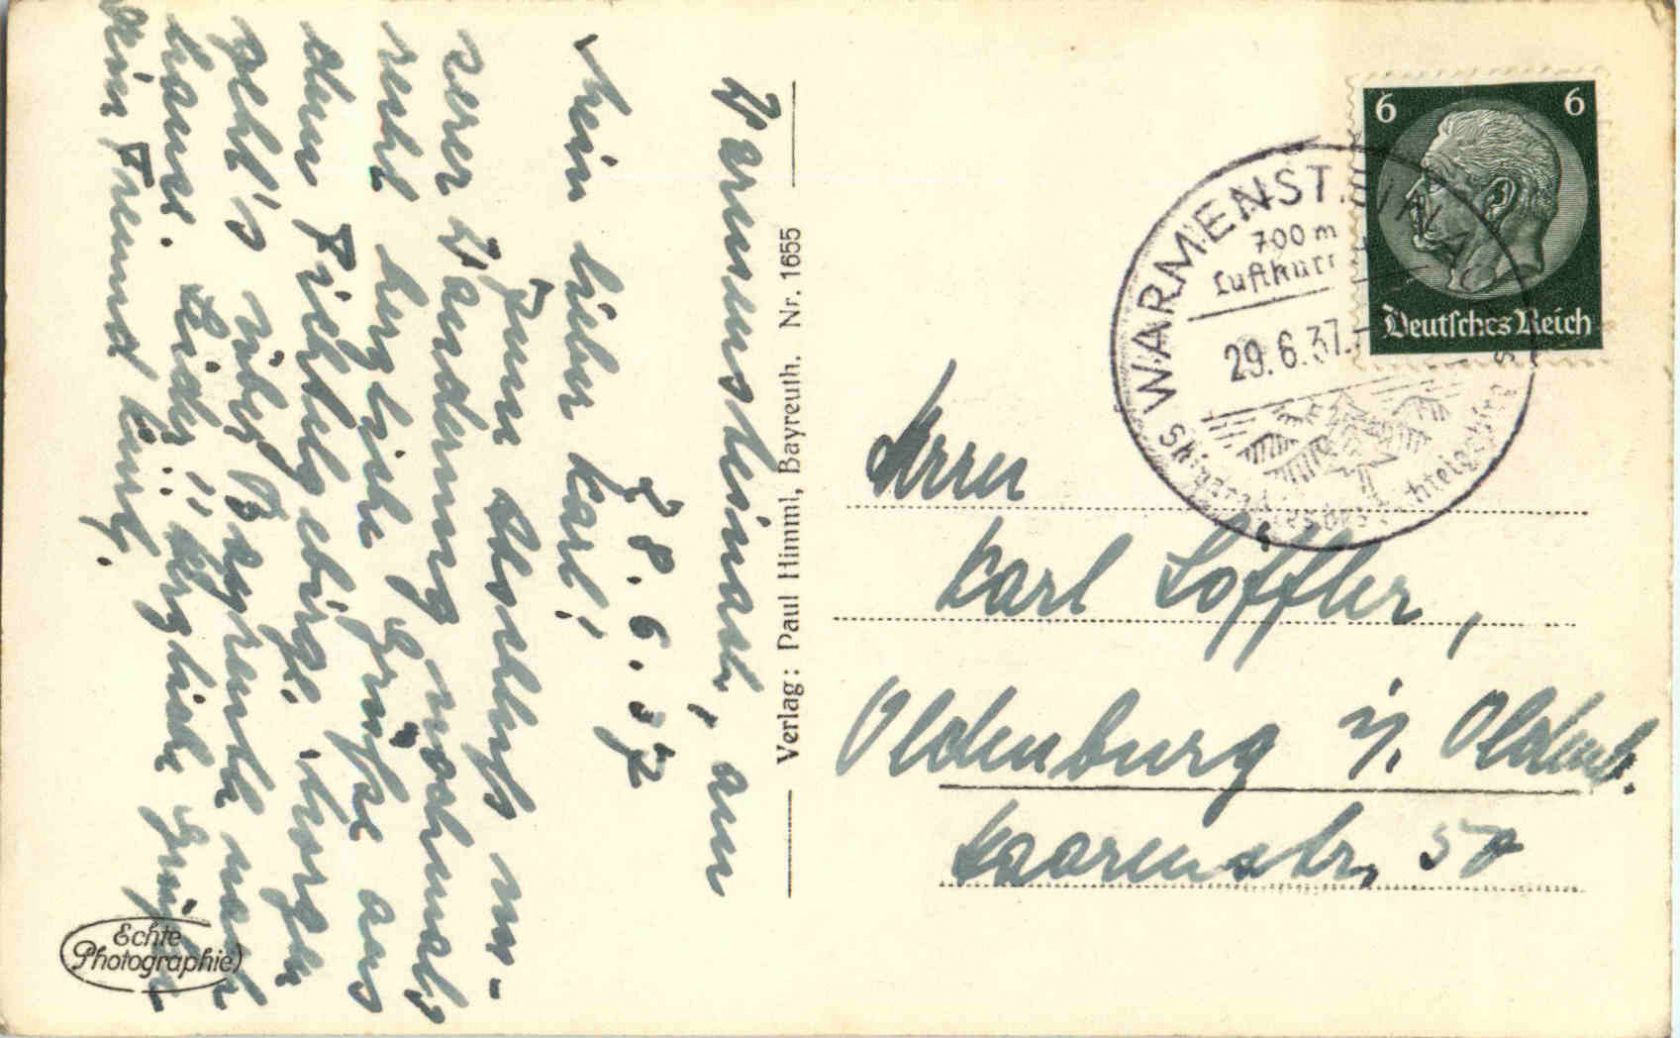 Warmensteinach, am
28.6.37
Mein lieber Karl!
Zum Abschluß un-
serer Wanderung nochmals
recht herzliche Grüße aus
dem Fichtelgebirge. Morgen
geht's über Bayreuth nach
hause. Herzliche Grüße
Dein Freund
Verlag: Paul Himml, Bayreuth. Nr. 1655
Echte
Photographie
6 6
Deutsches Reich
WARMENST
700 m
Luftkur
29.6.37.-
Herrn
Karl Löffler,
Oldenburg i/. Oldenb.
Haarenstr. 50